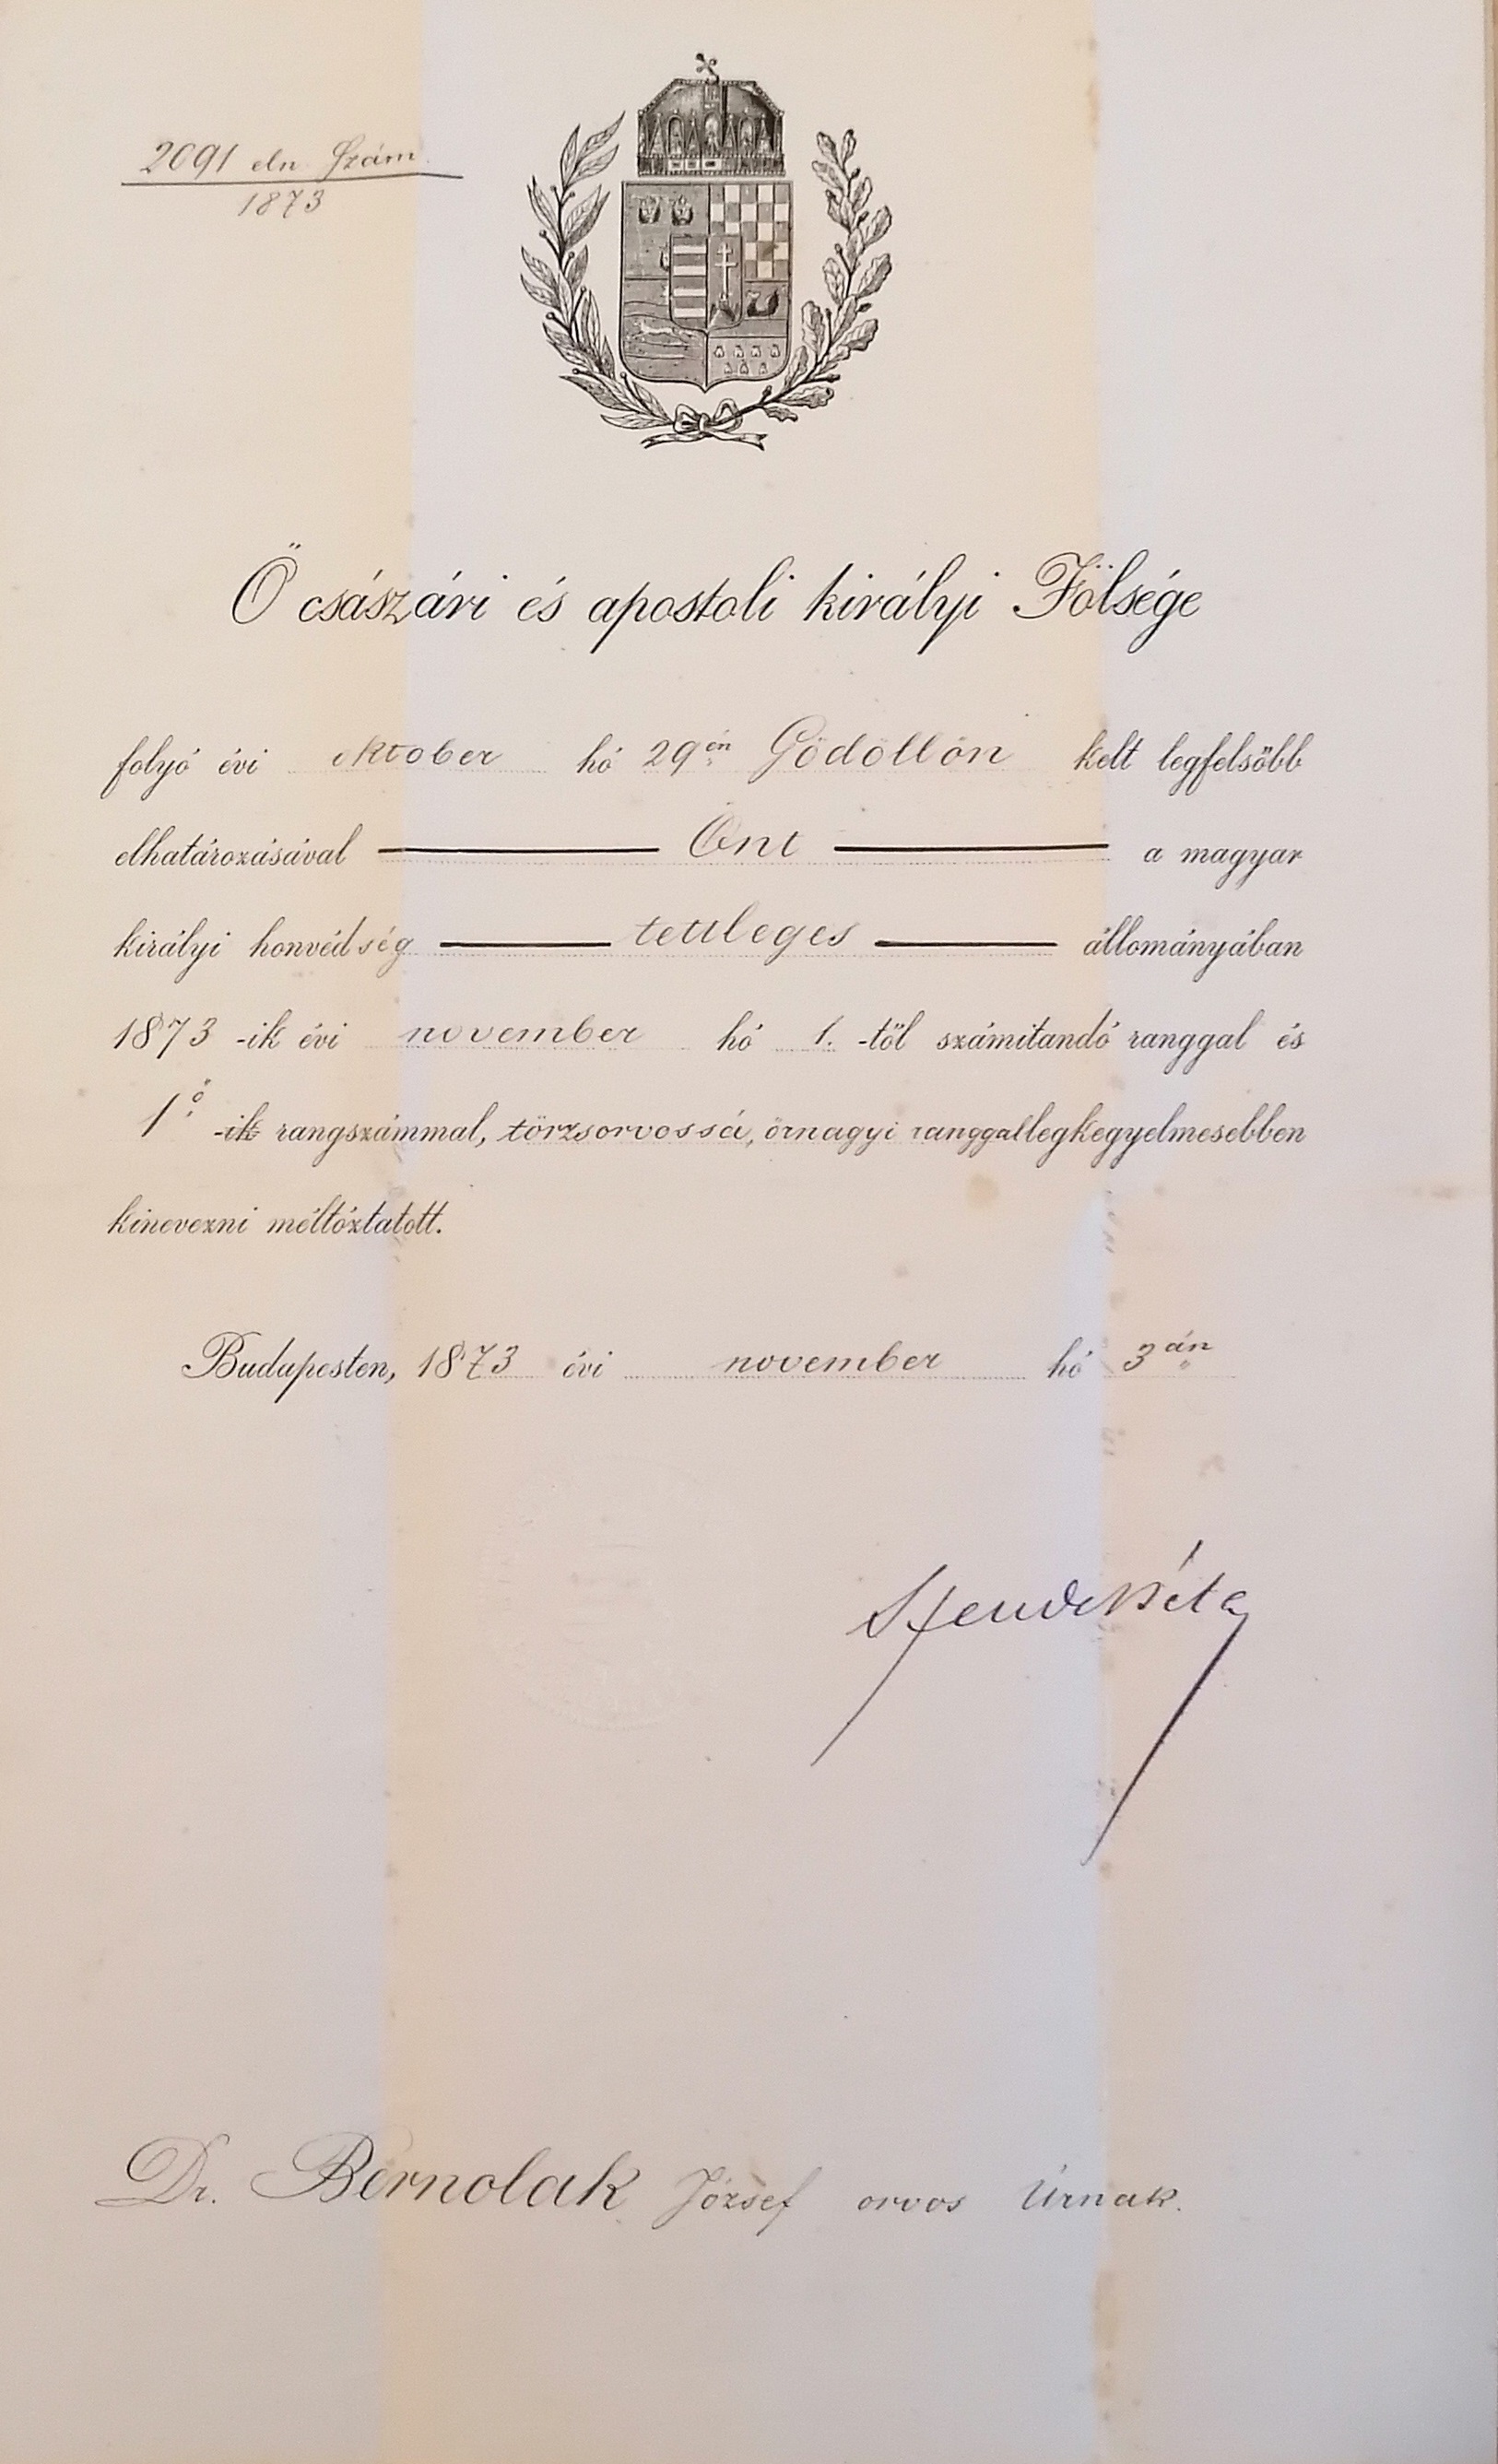 2091 eln. Szám.
1873
Ő császári és apostoli királyi Fölsége
folyó évi oktober hó 29én Gödöllőn kelt legfelsőbb
elhatározásával Önt a magyar
királyi honvédség tettleges állományában
1873-ik évi november hó 1.-től számitandó ranggal és
1ő -ik rangszámmal, törzsorvossá, őrnagyi ranggal legkegyelmesebben
kinevezni méltóztatott.
Budapesten, 1873 évi november hó 3án
Szende Béla
Dr. Bernolak József orvos Úrnak.